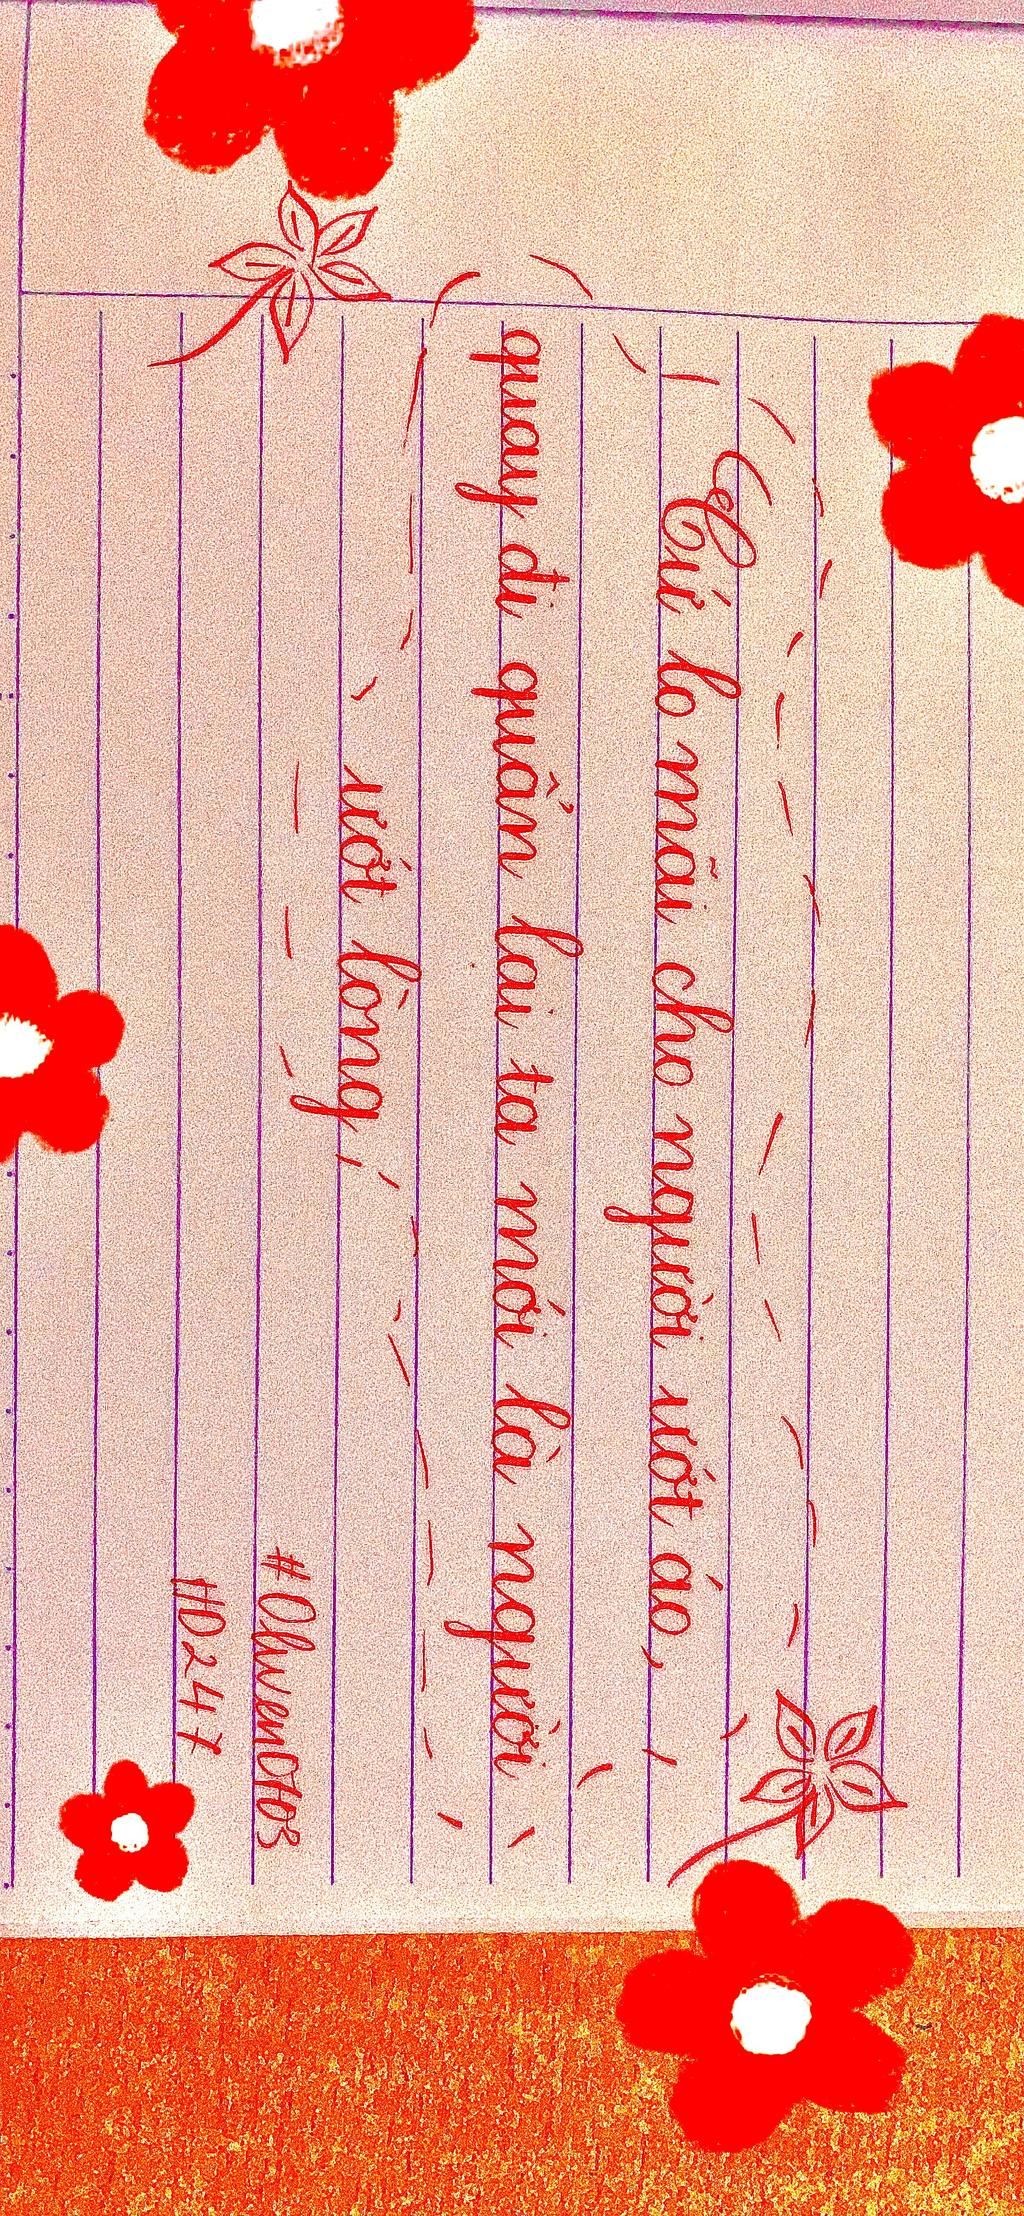 Cứ lo mãi cho người ướt áo,
quay đi quẩn lại ta mới là người
ướt lòng,
HD247